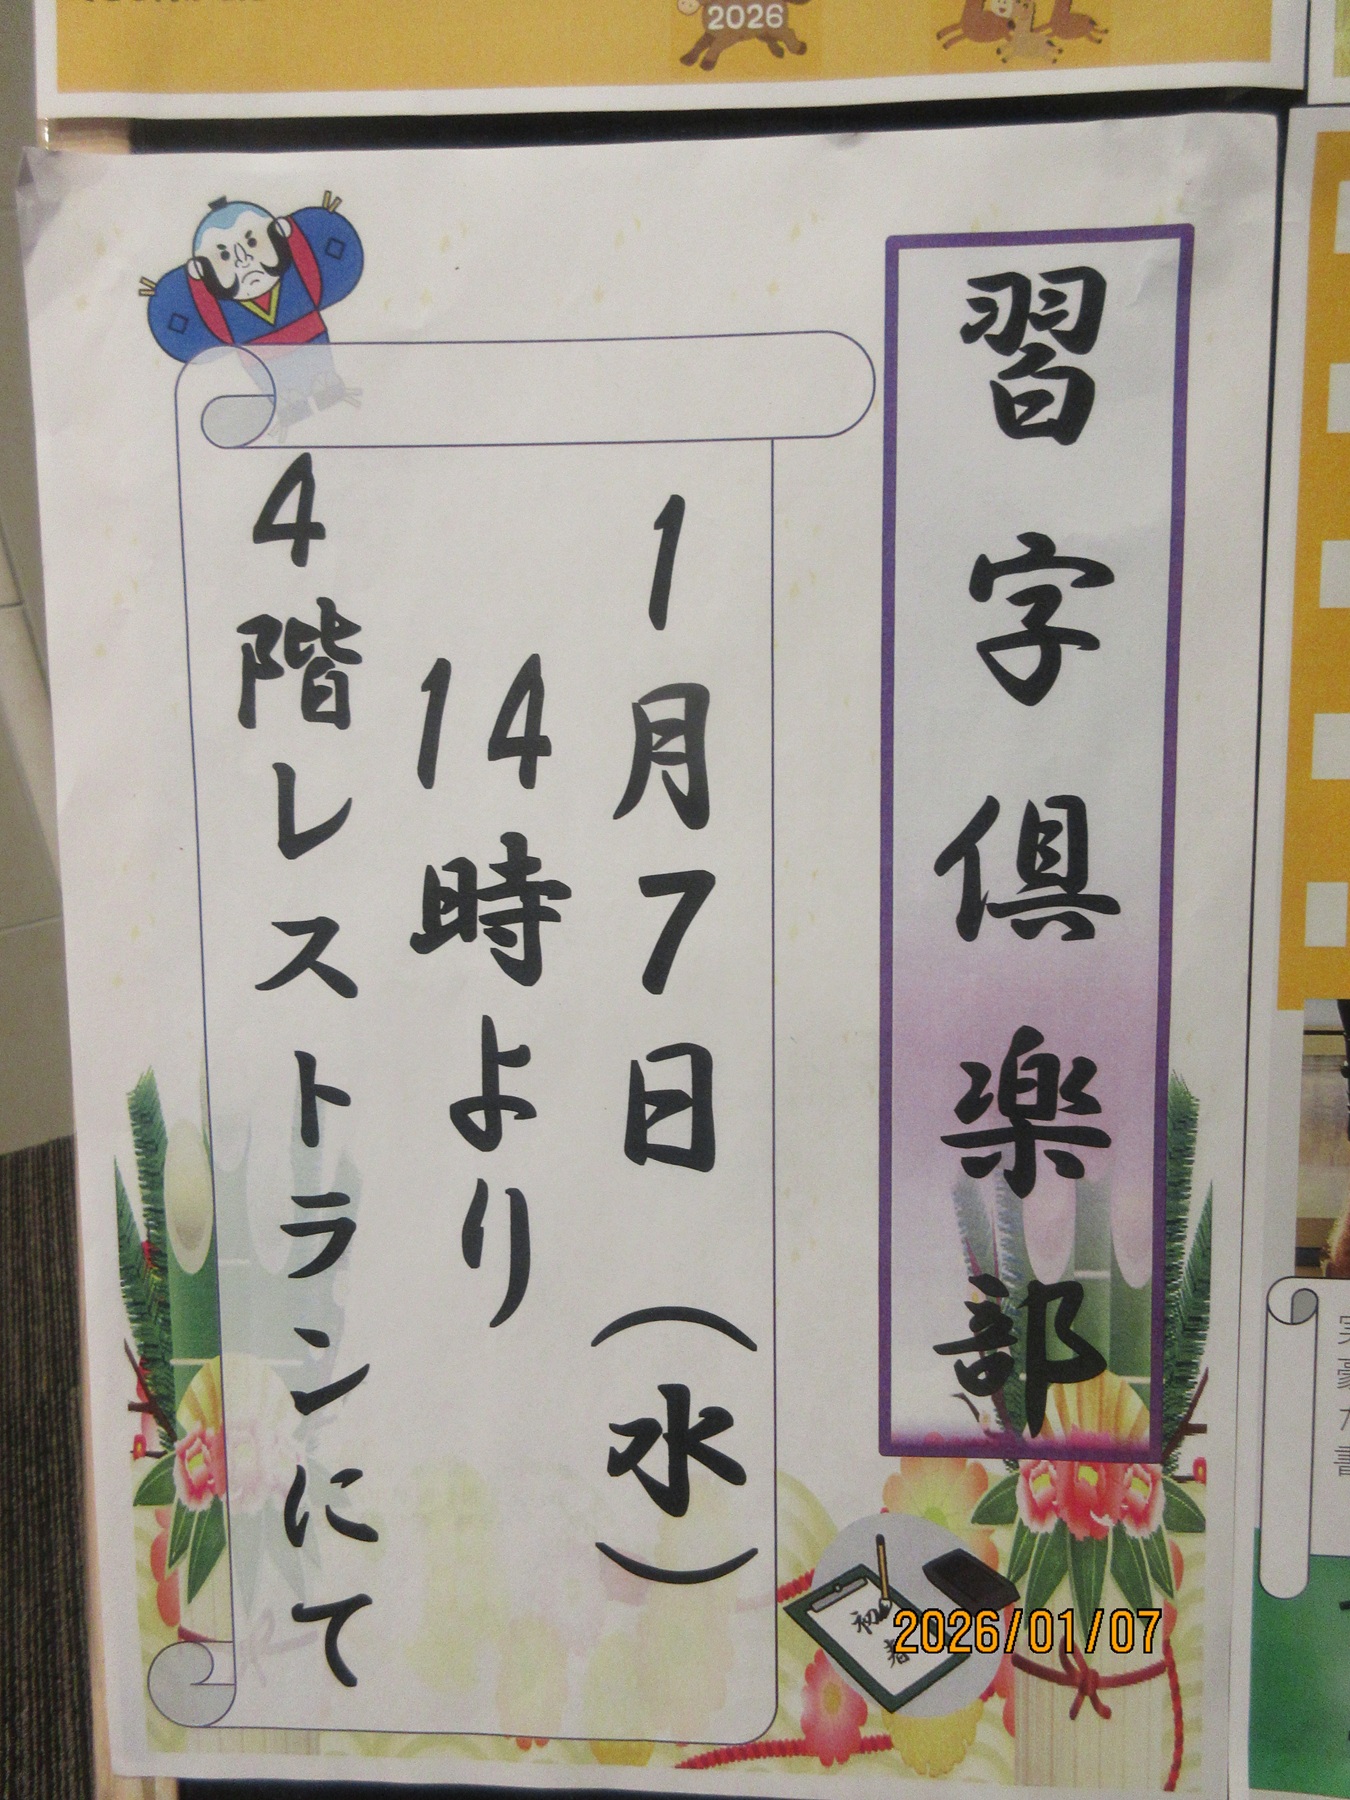 2026
習字倶楽部
1月7日（水）
14時より
4階レストランにて
初春
2026/01/07